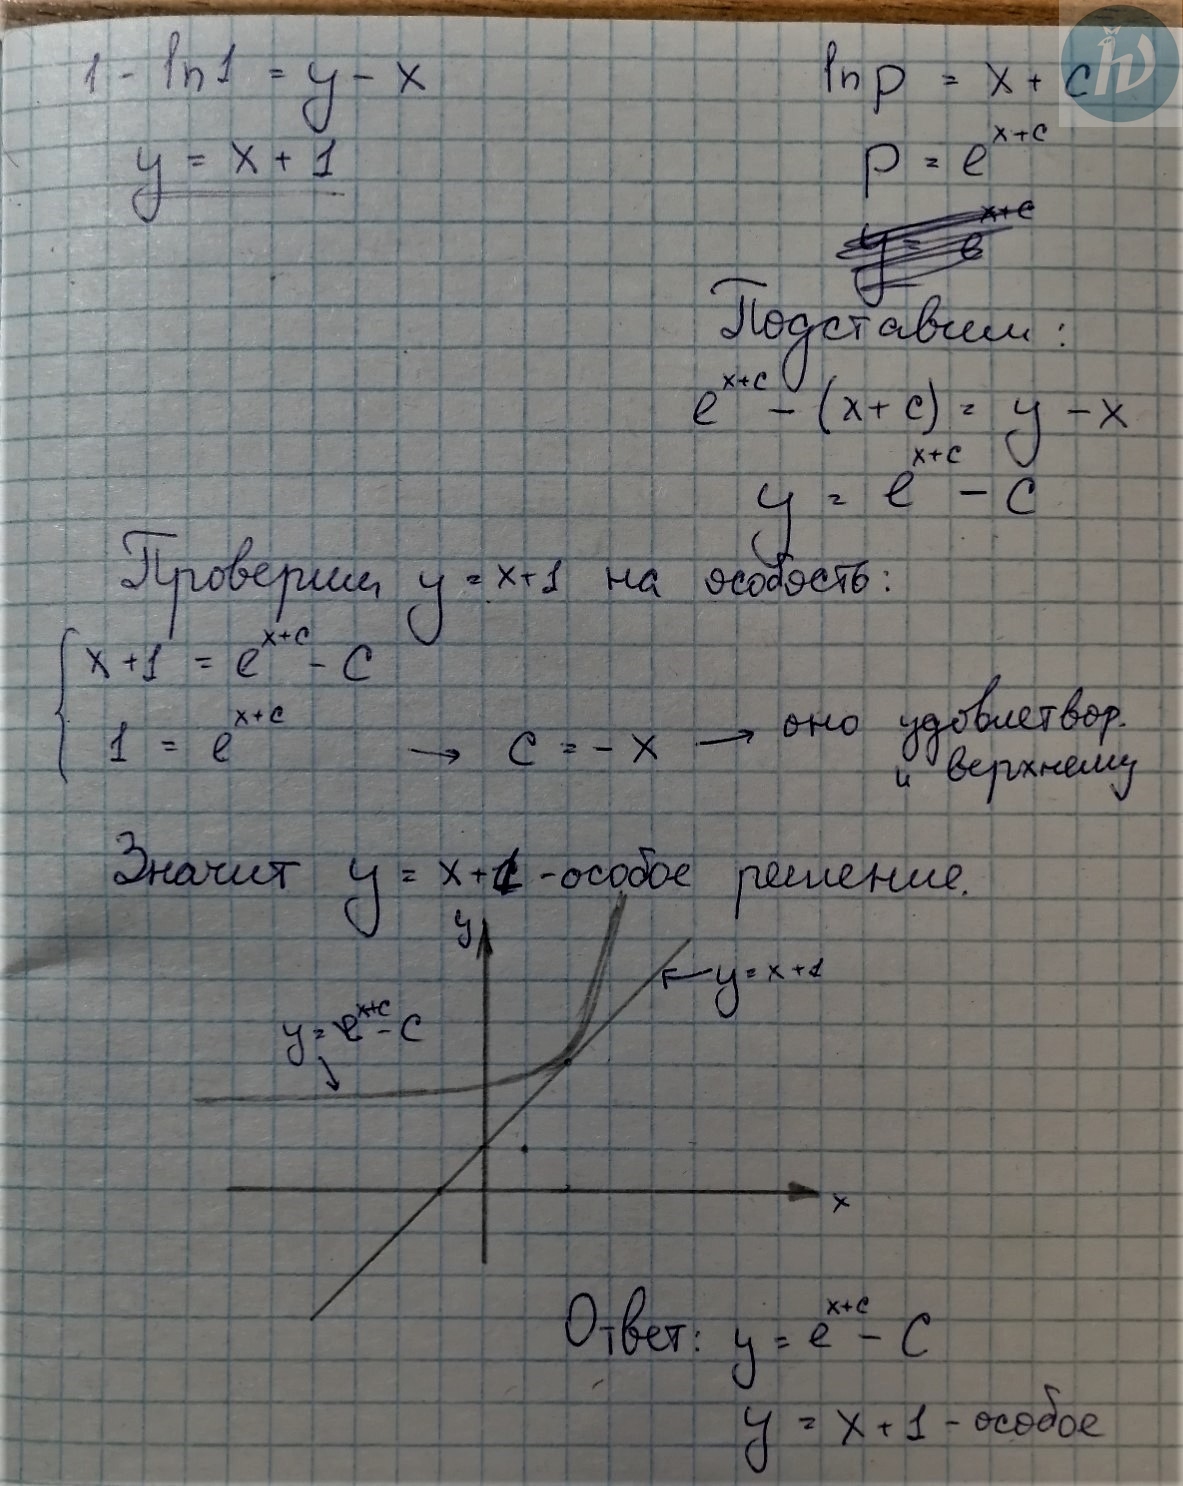 1 - ln1 = y - x
y = x + 1
ln p = x + c
p = e^{x+c}
y = e^{x+c}
Подставим:
e^{x+c} - (x+c) = y - x
y = e^{x+c} - C
Проверим y = x+1 на особость:
x+1 = e^{x+c} - C
1 = e^{x+c} → C = -x → оно удовлетвор.
и верхнему
Значит y = x+1 - особое решение.
y
y = x+1
y = e^{x+c} - C
x
Ответ: y = e^{x+c} - C
y = x + 1 - особое